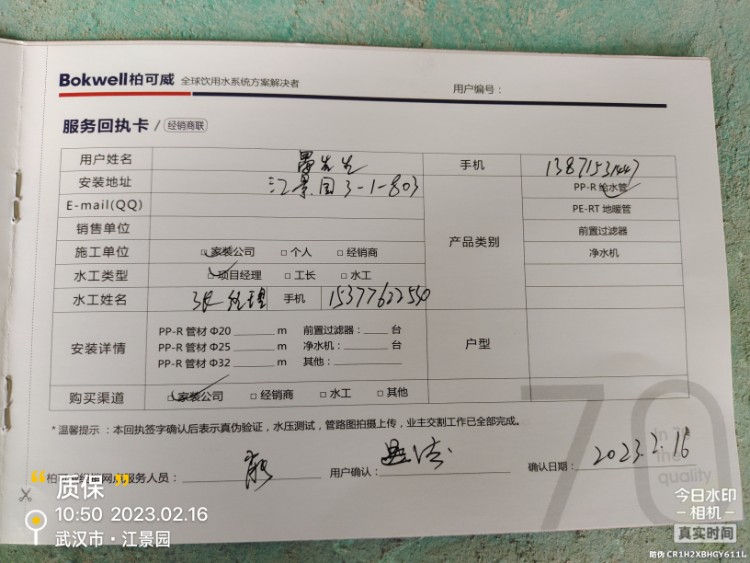 Bokwell柏可威 全球饮用水系统方案解决者
用户编号：
服务回执卡 / 经销商联
用户姓名 先生 手机 13871531447
安装地址 江景园3-1-803 PP-R 给水管
E-mail(QQ) PE-RT 地暖管
销售单位 产品类别 前置过滤器
施工单位 □ 家装公司 □ 个人 □ 经销商 净水机
水工类型 □ 项目经理 □ 工长 □ 水工
水工姓名 张经理 手机 15377622550
安装详情 PP-R 管材 Φ20 ____ m 前置过滤器：____ 台 户型
PP-R 管材 Φ25 ____ m 净水机：____ 台
PP-R 管材 Φ32 ____ m 其他：____
购买渠道 □ 家装公司 □ 经销商 □ 水工 □ 其他
*温馨提示：本回执签字确认后表示真伪验证，水压测试，管路图拍摄上传，业主交割工作已全部完成。
服务人员： 用户确认： 确认日期：2023.2.16
70
In 70
the
quality
质保
10:50 2023.02.16
武汉市·江景园
今日水印
相机
真实时间
防伪 CR1H2XBHGY611L